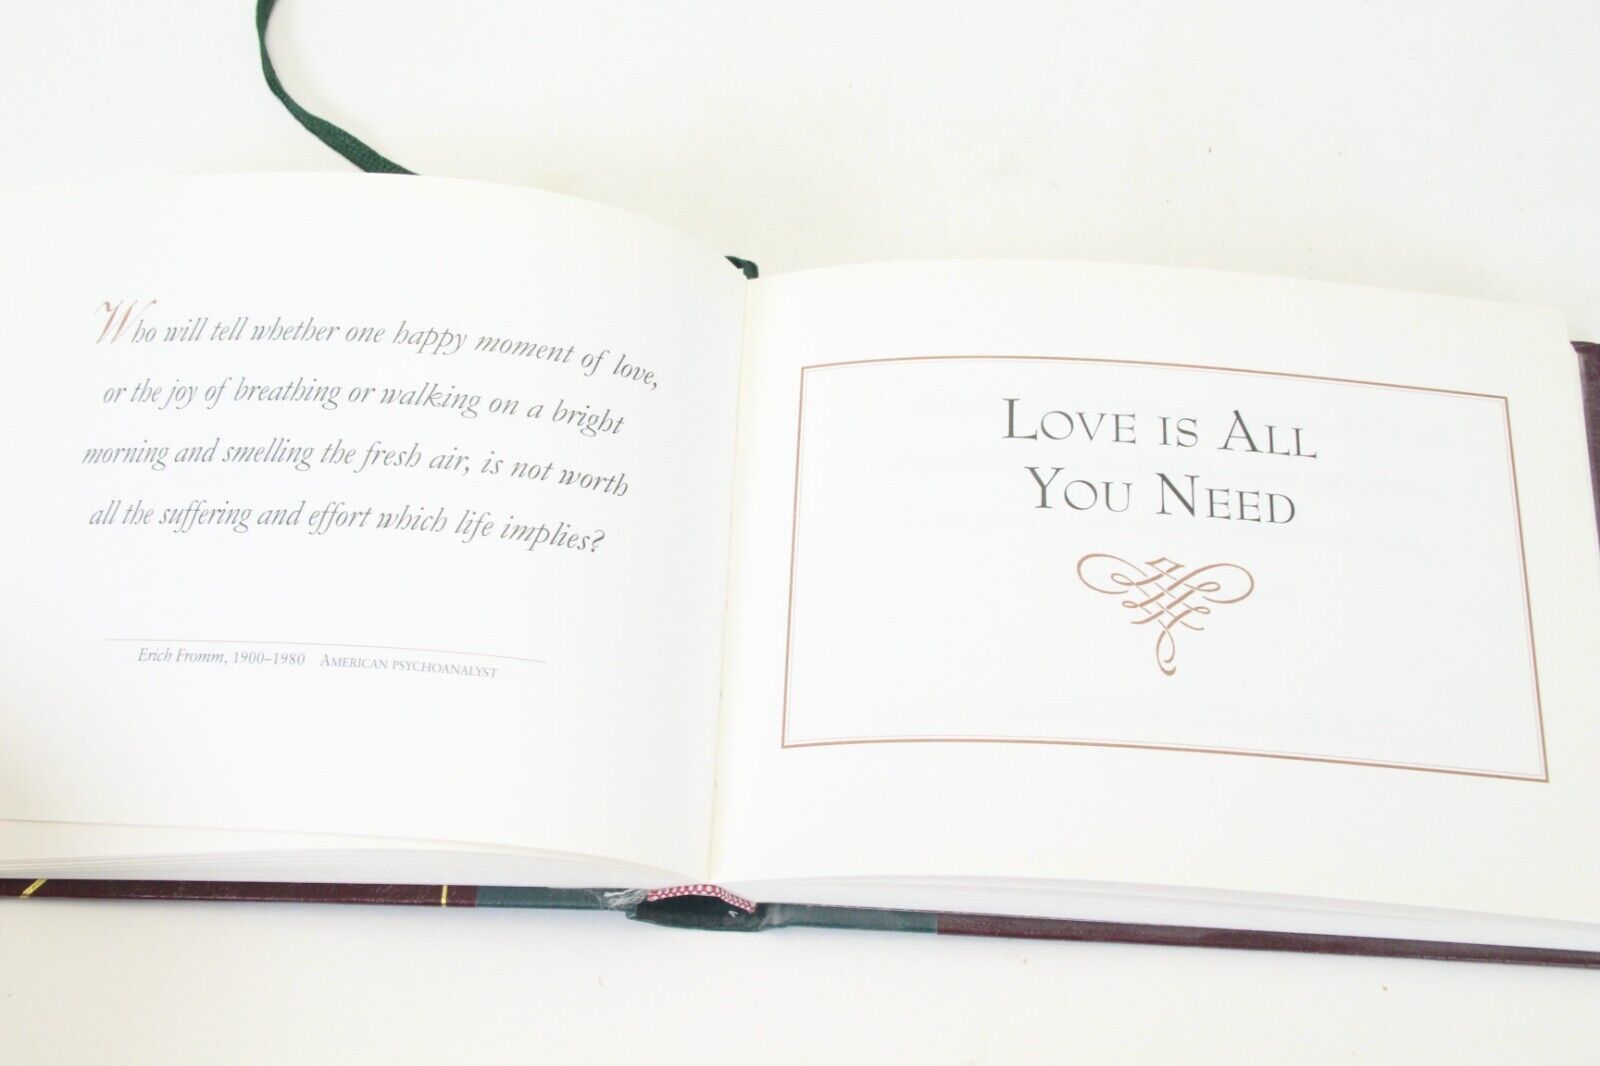 Who will tell whether one happy moment of love,
or the joy of breathing or walking on a bright
morning and smelling the fresh air, is not worth
all the suffering and effort which life implies?
Erich Fromm, 1900–1980 AMERICAN PSYCHOANALYST
LOVE IS ALL
YOU NEED